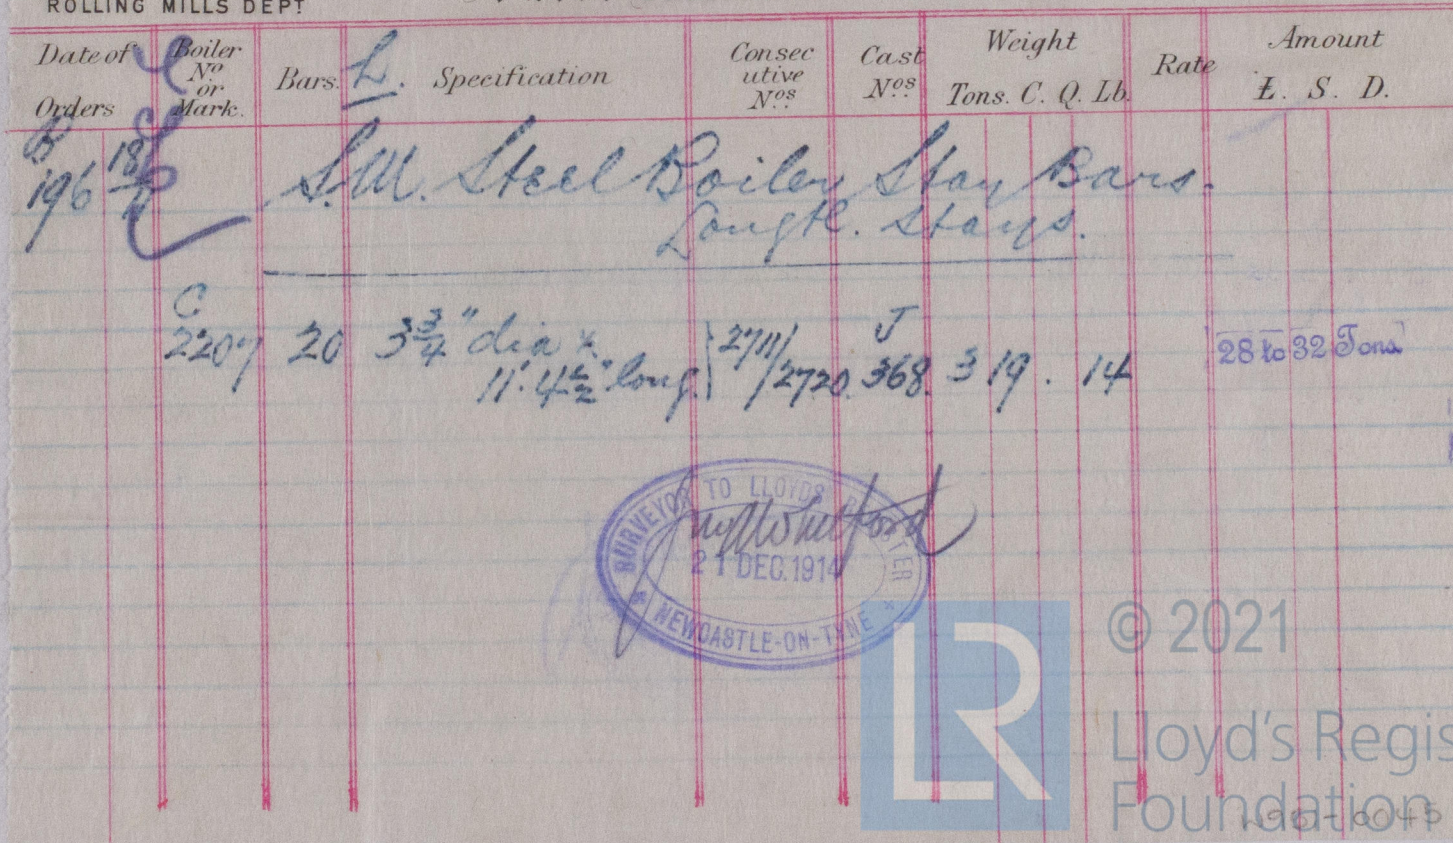 ROLLING MILLS DEPT
Date of Orders
Boiler No. or Mark.
Bars.
L.
Specification
Consecutive Nos
Cast Nos
Weight
Tons. C. Q. Lb.
Rate
Amount
£. S. D.
B
196
S.M. Steel Boiler Stay Bars.
Longtl. Stays.
C
2207 20 3 3/4" dia x
11'. 4 1/2" long.
2711/2720
J
368.
3 19 . 14
28 to 32 Tons
SURVEYOR TO LLOYDS REGISTER
21 DEC. 1914
NEWCASTLE-ON-TYNE
LR
© 2021
Lloyd's Regis
Foundation